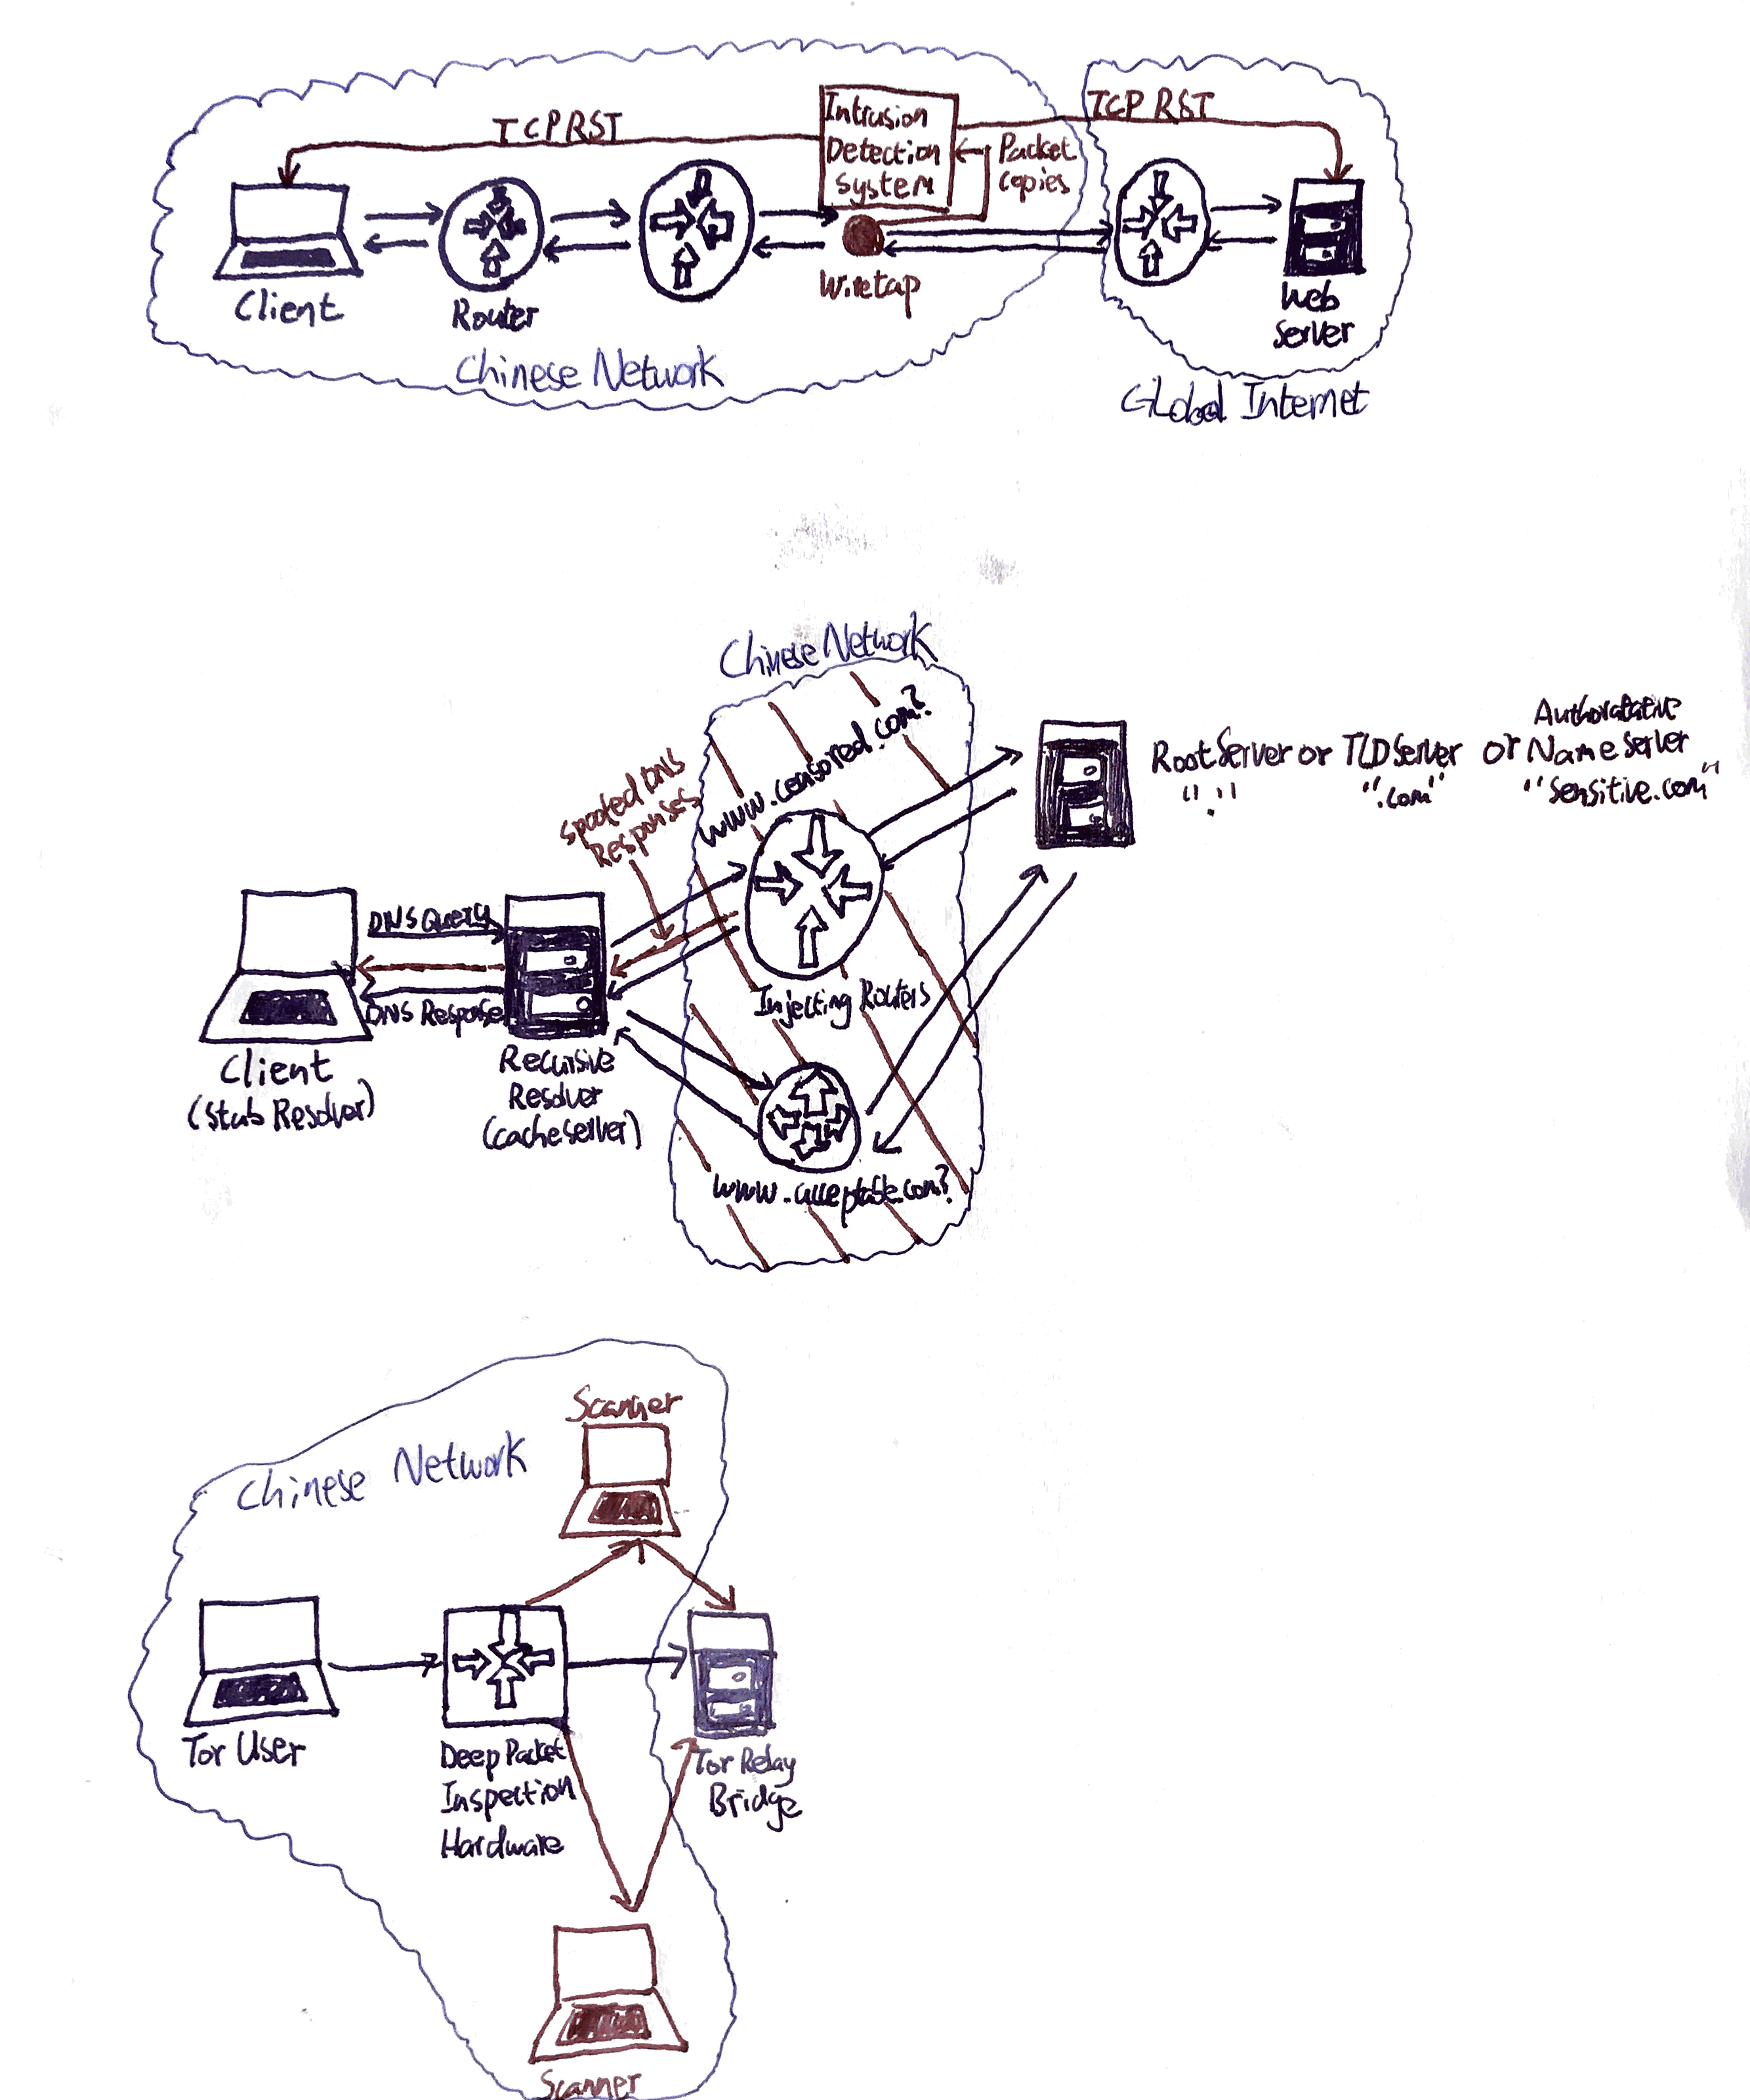 TCP RST
Intrusion
Detection
System
Packet
Copies
TCP RST
Client
Router
Wiretap
Web
Server
Chinese Network
Global Internet
Chinese Network
www.censored.com?
Spoofed DNS
Responses
Authoratative
Root Server or TLD Server or Name Server
"." ".com" "sensitive.com"
DNS Query
DNS Response
Injecting Routers
Client
(Stub Resolver)
Recursive
Resolver
(cache server)
www.acceptable.com?
Scanner
Chinese Network
Tor User
Deep Packet
Inspection
Hardware
Tor Relay
Bridge
Scanner